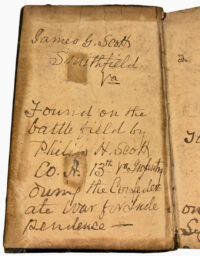 James G. Scott
Smithfield
Va
Found on the
battle field by
Philip H. Scott
Co. A. 13th Va Infantry
during the Confeder
ate war for inde
pendence —